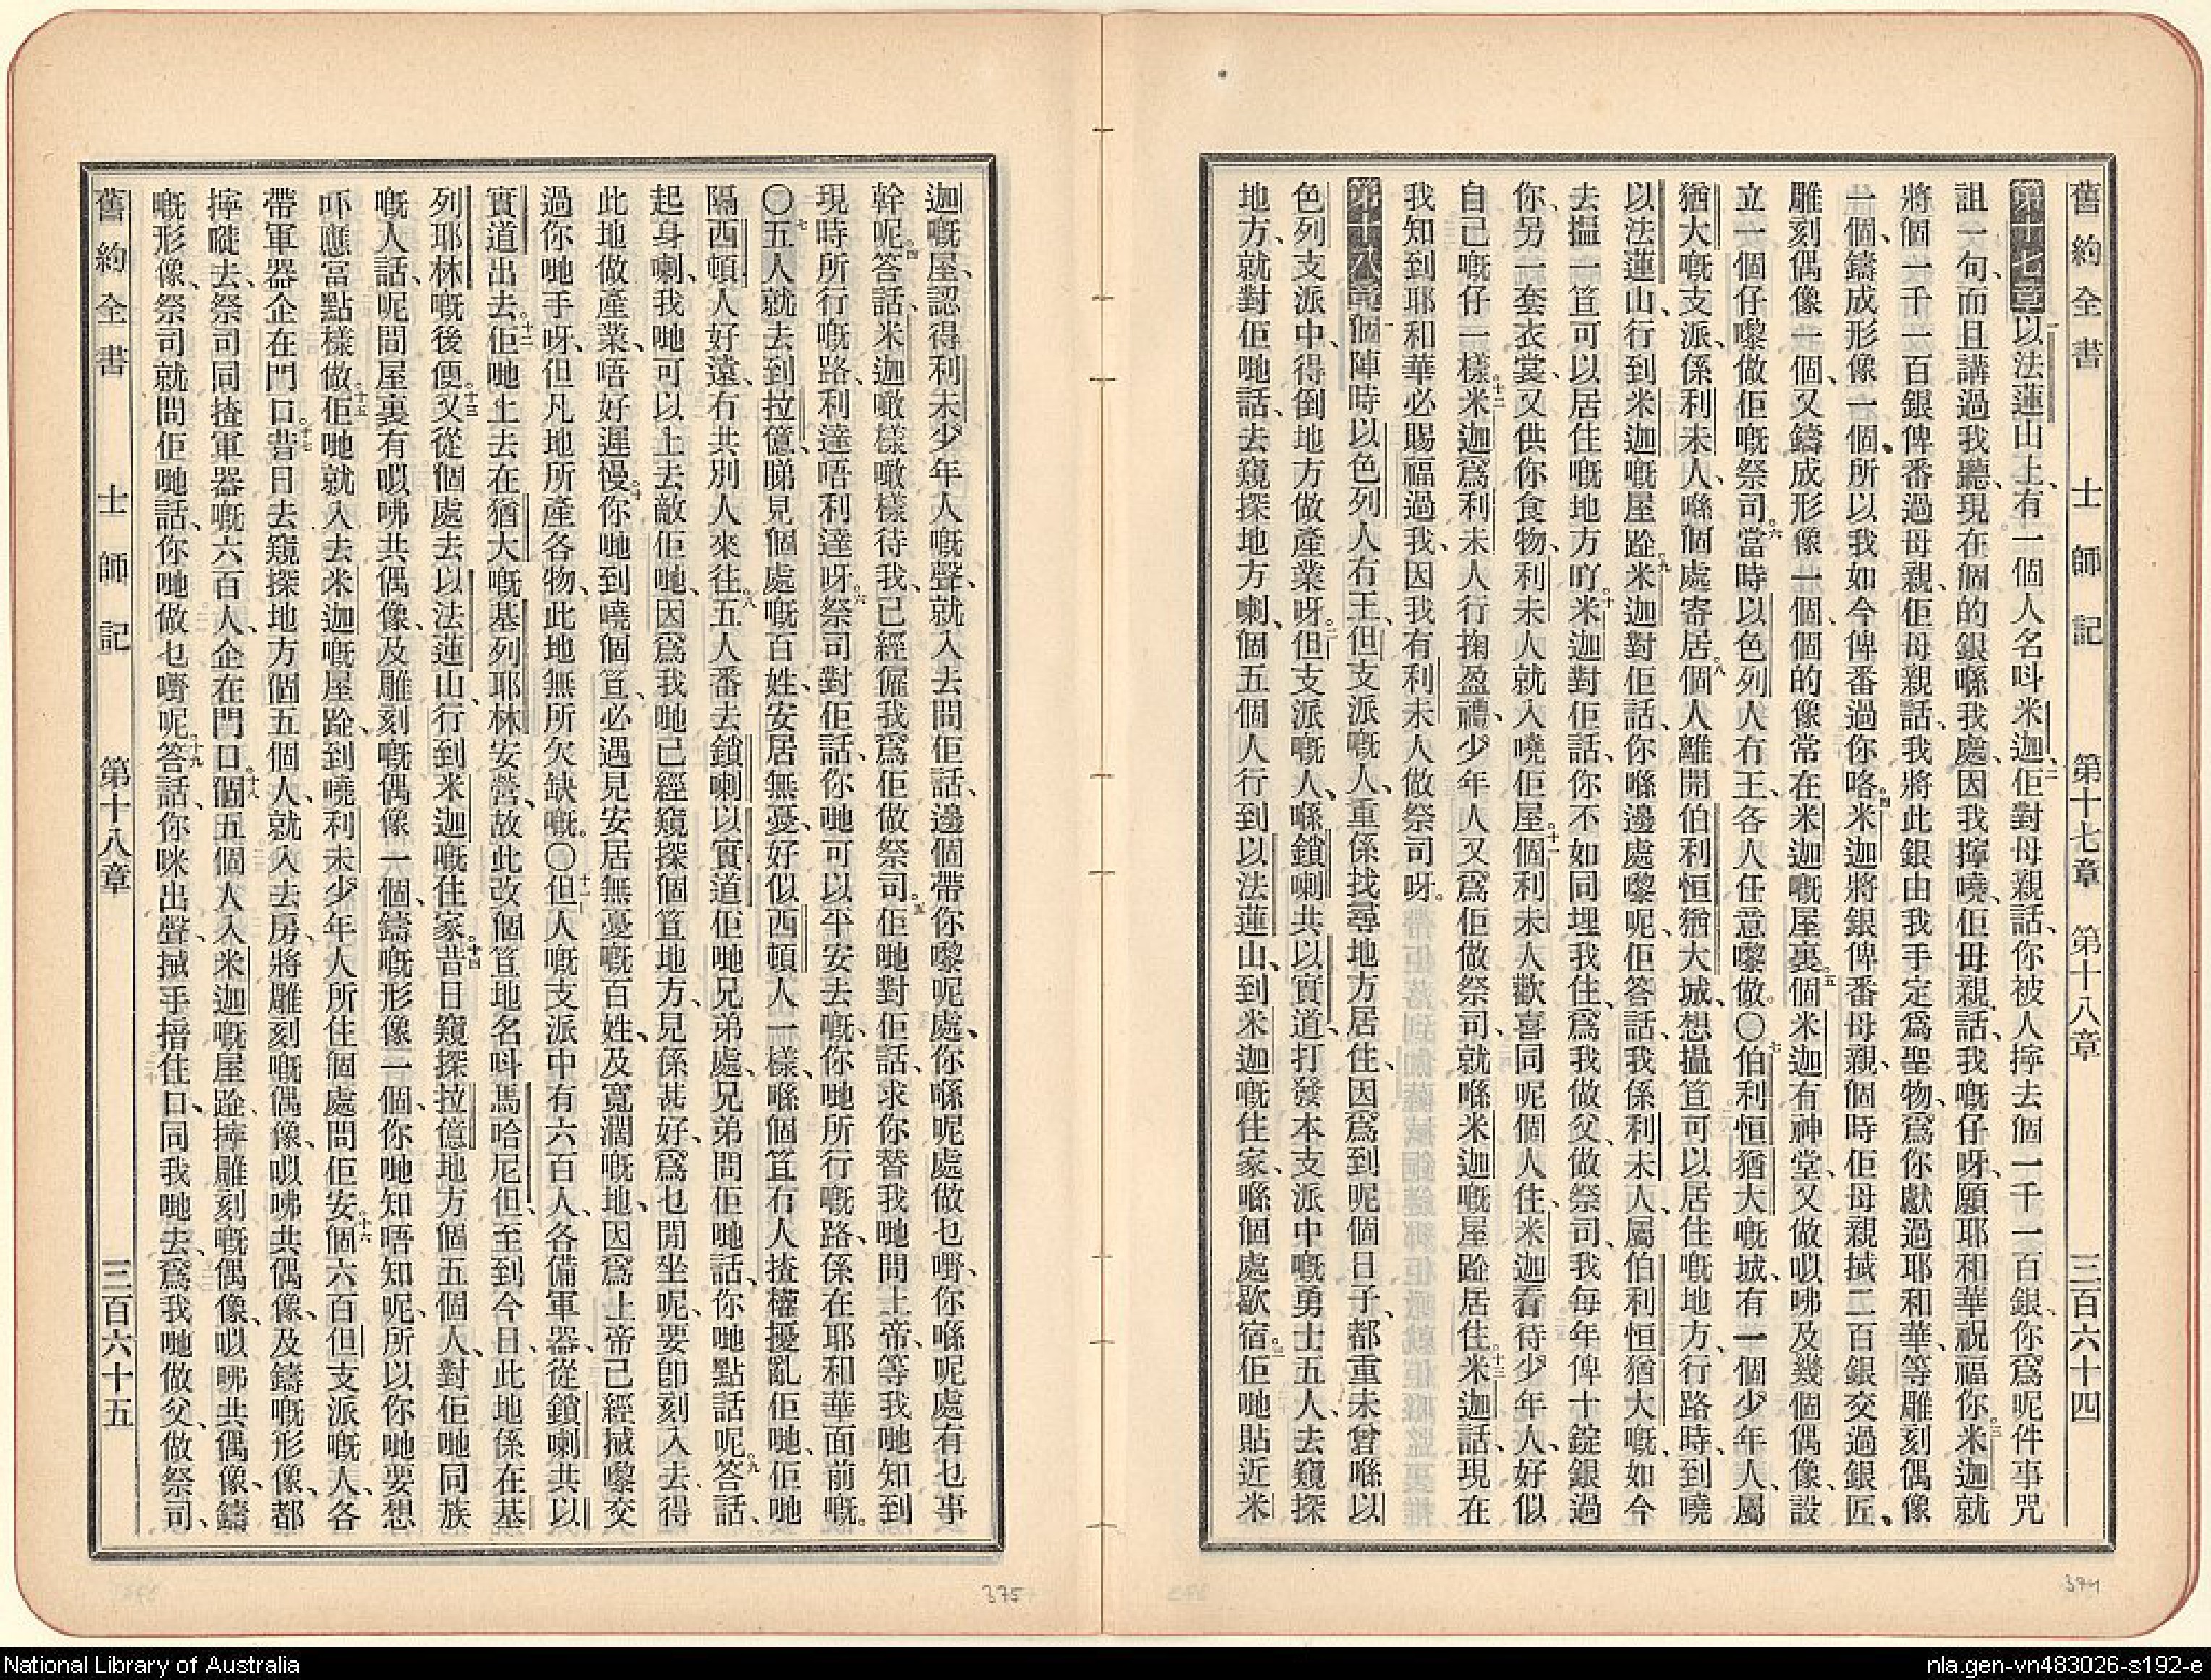 舊約全書 士師記 第十七章 第十八章 三百六十四
第十七章一以法蓮山上、有一個人名呌米迦、二佢對母親話、你被人擰去個一千一百銀、你爲呢件事咒
詛一句、而且講過我聽、現在個的銀喺我處、因我擰曉、佢母親話、我嘅仔呀、願耶和華祝福你。三米迦就
將個一千一百銀俾番過母親、佢母親話、我將此銀由我手定爲聖物、爲你獻過耶和華、等雕刻偶像
一個、鑄成形像一個、所以我如今俾番過你咯。四米迦將銀俾番母親、個時佢母親搣二百銀交過銀匠、
雕刻偶像一個、又鑄成形像一個、個的像常在米迦嘅屋裏。五個米迦有神堂、又做㕥咈及幾個偶像、設
立一個仔嚟做佢嘅祭司。六當時以色列人冇王、各人任意嚟做。〇七伯利恒猶大嘅城、有一個少年人、屬
猶大嘅支派、係利未人、喺個處寄居。八個人離開伯利恒猶大城、想揾笪可以居住嘅地方、行路時、到曉
以法蓮山、行到米迦嘅屋跲。九米迦對佢話、你喺邊處嚟呢、佢答話、我係利未人、屬伯利恒猶大嘅、如今
去揾一笪可以居住嘅地方吖。十米迦對佢話、你不如同埋我住、爲我做父、做祭司、我每年俾十錠銀過
你、另一套衣裳、又供你食物、利未人就入曉佢屋。十一個利未人歡喜同呢個人住、米迦看待少年人、好似
自己嘅仔一樣。十二米迦爲利未人行掬盈禮、少年人又爲佢做祭司、就喺米迦嘅屋跲居住。十三米迦話、現在
我知到耶和華必賜福過我、因我有利未人做祭司呀。
第十八章一個陣時以色列人冇王、但支派嘅人、重係找尋地方居住、因爲到呢個日子、都重未曾喺以
色列支派中、得倒地方做產業呀。二但支派嘅人、喺鎖喇共以實道、打發本支派中嘅勇士五人、去窺探
地方、就對佢哋話、去窺探地方喇、個五個人行到以法蓮山、到米迦嘅住家、喺個處歇宿。三佢哋貼近米
迦嘅屋、認得利未少年人嘅聲、就入去問佢話、邊個帶你嚟呢處、你喺呢處做乜嘢、你喺呢處有乜事
幹呢。四答話、米迦噉樣噉樣待我、已經僱我、爲佢做祭司。五佢哋對佢話、求你替我哋問上帝、等我哋知到
現時所行嘅路、利達唔利達呀。六祭司對佢話、你哋可以平安去嘅、你哋所行嘅路、係在耶和華面前嘅。
〇七五人就去到拉億、睇見個處嘅百姓、安居無憂、好似西頓人一樣、喺個笪冇人揸權擾亂佢哋、佢哋
隔西頓人好遠、冇共別人來往。八五人番去鎖喇以實道佢哋兄弟處、兄弟問佢哋話、你哋點話呢。九答話、
起身喇、我哋可以上去敵佢哋、因爲我哋已經窺探個笪地方、見係甚好、爲乜閒坐呢、要卽刻入去得
此地做產業、唔好遲慢。十你哋到曉個笪、必遇見安居無憂嘅百姓、及寬濶嘅地、因爲上帝已經搣嚟交
過你哋手呀、但凡地所產各物、此地無所欠缺嘅。〇十一但人嘅支派中有六百人、各備軍器、從鎖喇共以
實道出去。十二佢哋上去在猶大嘅基列耶林安營、故此改個笪地名呌馬哈尼但、至到今日、此地係在基
列耶林嘅後便。十三又從個處去以法蓮山、行到米迦嘅住家。十四昔日窺探拉億地方個五個人、對佢哋同族
嘅人話、呢間屋裏有㕥咈共偶像、及雕刻嘅偶像一個、鑄嘅形像一個、你哋知唔知呢、所以你哋要想
吓應當點樣做。十五佢哋就入去米迦嘅屋跲、到曉利未少年人所住個處、問佢安。十六個六百但支派嘅人、各
帶軍器企在門口。十七昔日去窺探地方個五個人、就入去房、將雕刻嘅偶像、㕥咈共偶像、及鑄嘅形像、都
擰嘥去、祭司同揸軍器嘅六百人、企在門口。十八個五個人入米迦嘅屋跲、擰雕刻嘅偶像、㕥咈共偶像、鑄
嘅形像、祭司就問佢哋話、你哋做乜嘢呢。十九答話、你咪出聲、搣手揞住口、同我哋去、爲我哋做父、做祭司、
舊約全書 士師記 第十八章 三百六十五
374
375
National Library of Australia
nla.gen-vn483026-s192-e